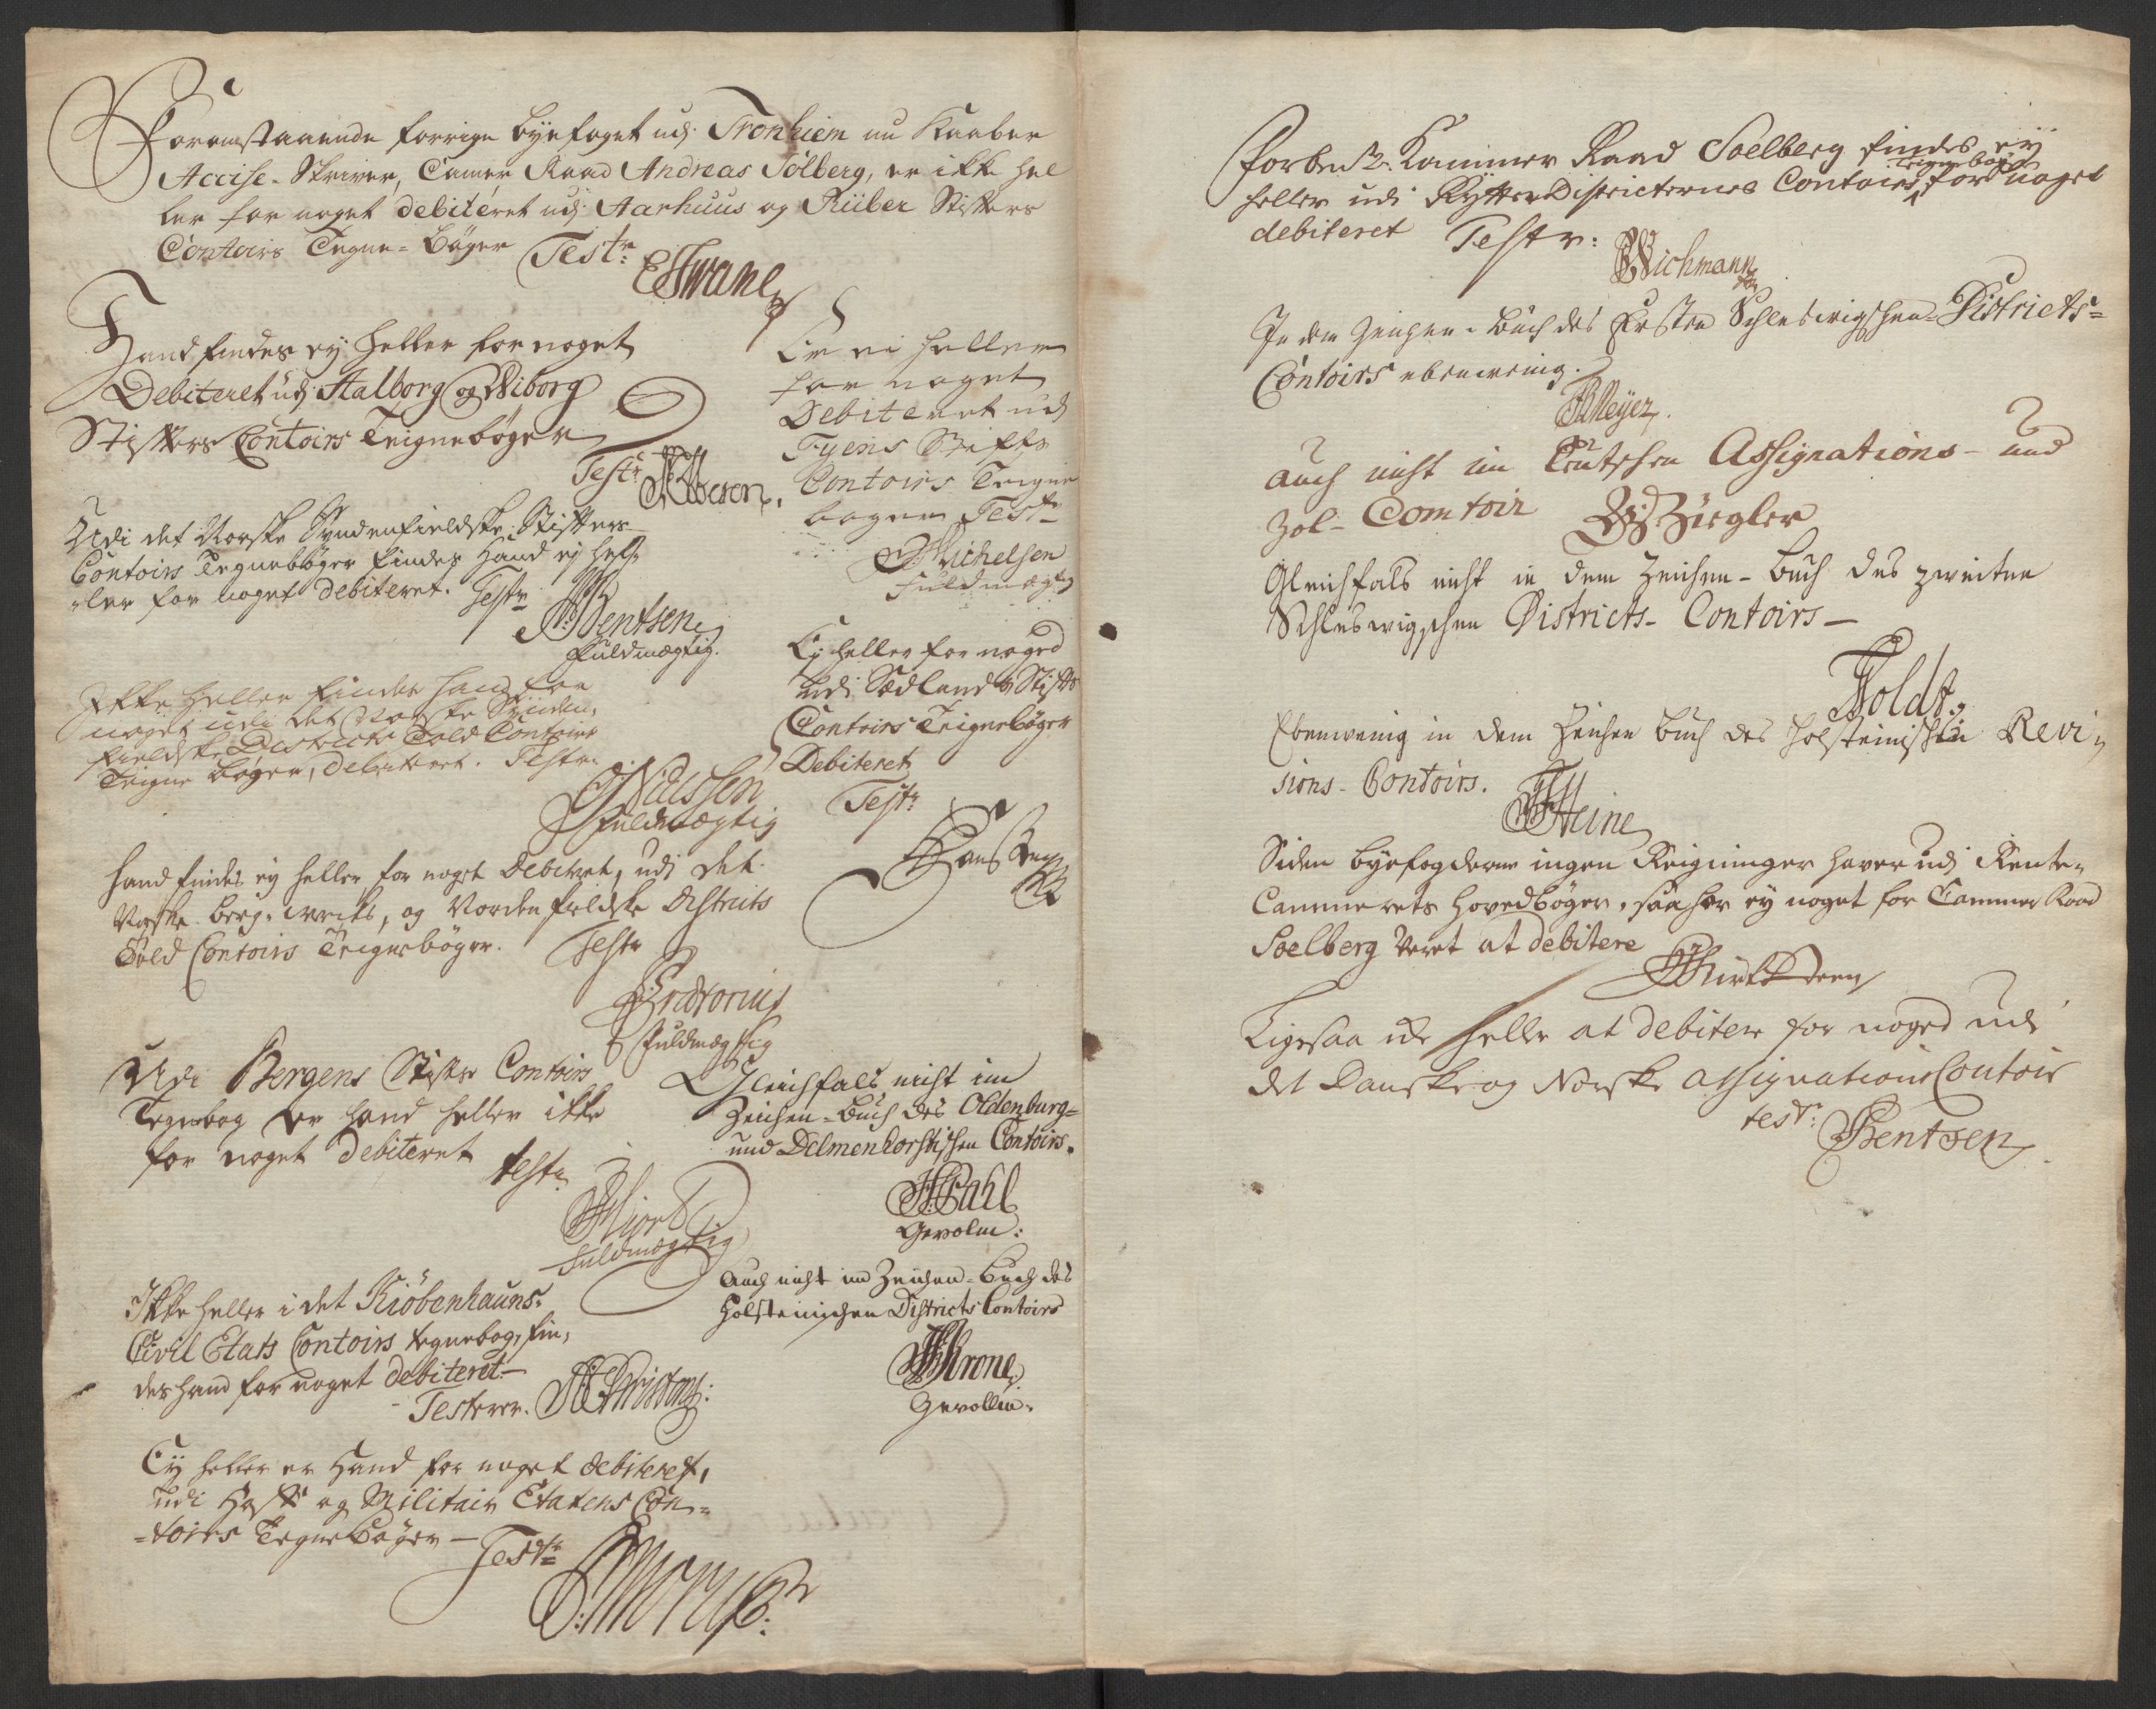 Foromstaaende forrige byefoget udj Tronhiem nu Kaaber
Accise-Skriver, Camer Raad Andreas Sölberg, er ikke hel
ler for noget debiteret udj Aarhuus og Riiber Stifters
Contoirs Tegne-bøger Testr:
Hand findes ey heller for noget
Debiteret udj Aalborg og Wiborg
Stifters Contoirs Teignebøger
Testr:
Udi det Norske Syndenfieldske Stifters
Contoirs Tegnebøger findes Hand ej hel
ler for noget debiteret. Testr
Bentsen
Fuldmægtig.
Ikke heller findes hand for
noget udi det Norske Synden,
fieldske Districts Told Contoirs
Teigne bøger, debiteret. Testr:
Nielssen
Fuldmægtig
Hand findes ey heller for noget debiteret, udi det
Norske berg-wercks, og Nordenfieldske Districts
Told Contoirs Teignebøger. Testr
Prætorius
Fuldmægtig
Udi Bergens Stifts Contoirs
Tegnebog er hand heller ikke
for noget debiteret
testr
Hiort
Fuldmægtig
Ikke heller i det Kiöbenhauns
Civil Etats Contoirs tegnebog, fin,
des hand for noget debiteret-
Testerer.
Ey heller er Hand for noget debiteret,
udi Hoff og Militair Etatens Con-
-toirs Tegnebøger - Testr
Er ei heller
for noget
Debiteret udj
Fyens Stifts
Contoirs Teigne
bøger Testr
Michelsen
Fuldmægtig
Ey heller for noged
udi Sædlands Stifts
Contoirs Teignebøger
Debiteret
Testr
Gleichfals nicht im
Zeichen-Buch des Oldenburg-
und Delmenhorstischen Contoirs.
Pahl
Gevolm:
Auch nicht im Zeichen-Buch des
Holsteinischen Districts Contoirs
Krone
Gevollm.
Forben:te Kammer Raad Soelberg findes ey
heller udi Rytter Districternes Contoirs Teignebog for noget
debiteret Testr:
Wichmann
In dem Zeichen-Buch des Ersten Schleswigschen-Districts-
Contoirs ebenwenig.
Meyer.
Auch nicht im Teutschen Assignations- und
Zol-Comtoir Ziegler
Gleichfals nicht in dem Zeichen-Buch des zweiten
Schleswigschen Districts-Contoirs-
Holdt.
Ebenwenig in dem Zeichen Buch des Holsteinischen Revi-
sions-Contoirs.
Heine
Siden byefogderne ingen Reigninger haver udj Rente-
Cammerets Hovedbøger, saa har ey noget for Cammer Raad
Soelberg været at debitere
Ligesaa ike heller at debitere for noged udi
det Danske og Norske Assignations Contoir
test:
Bentsen